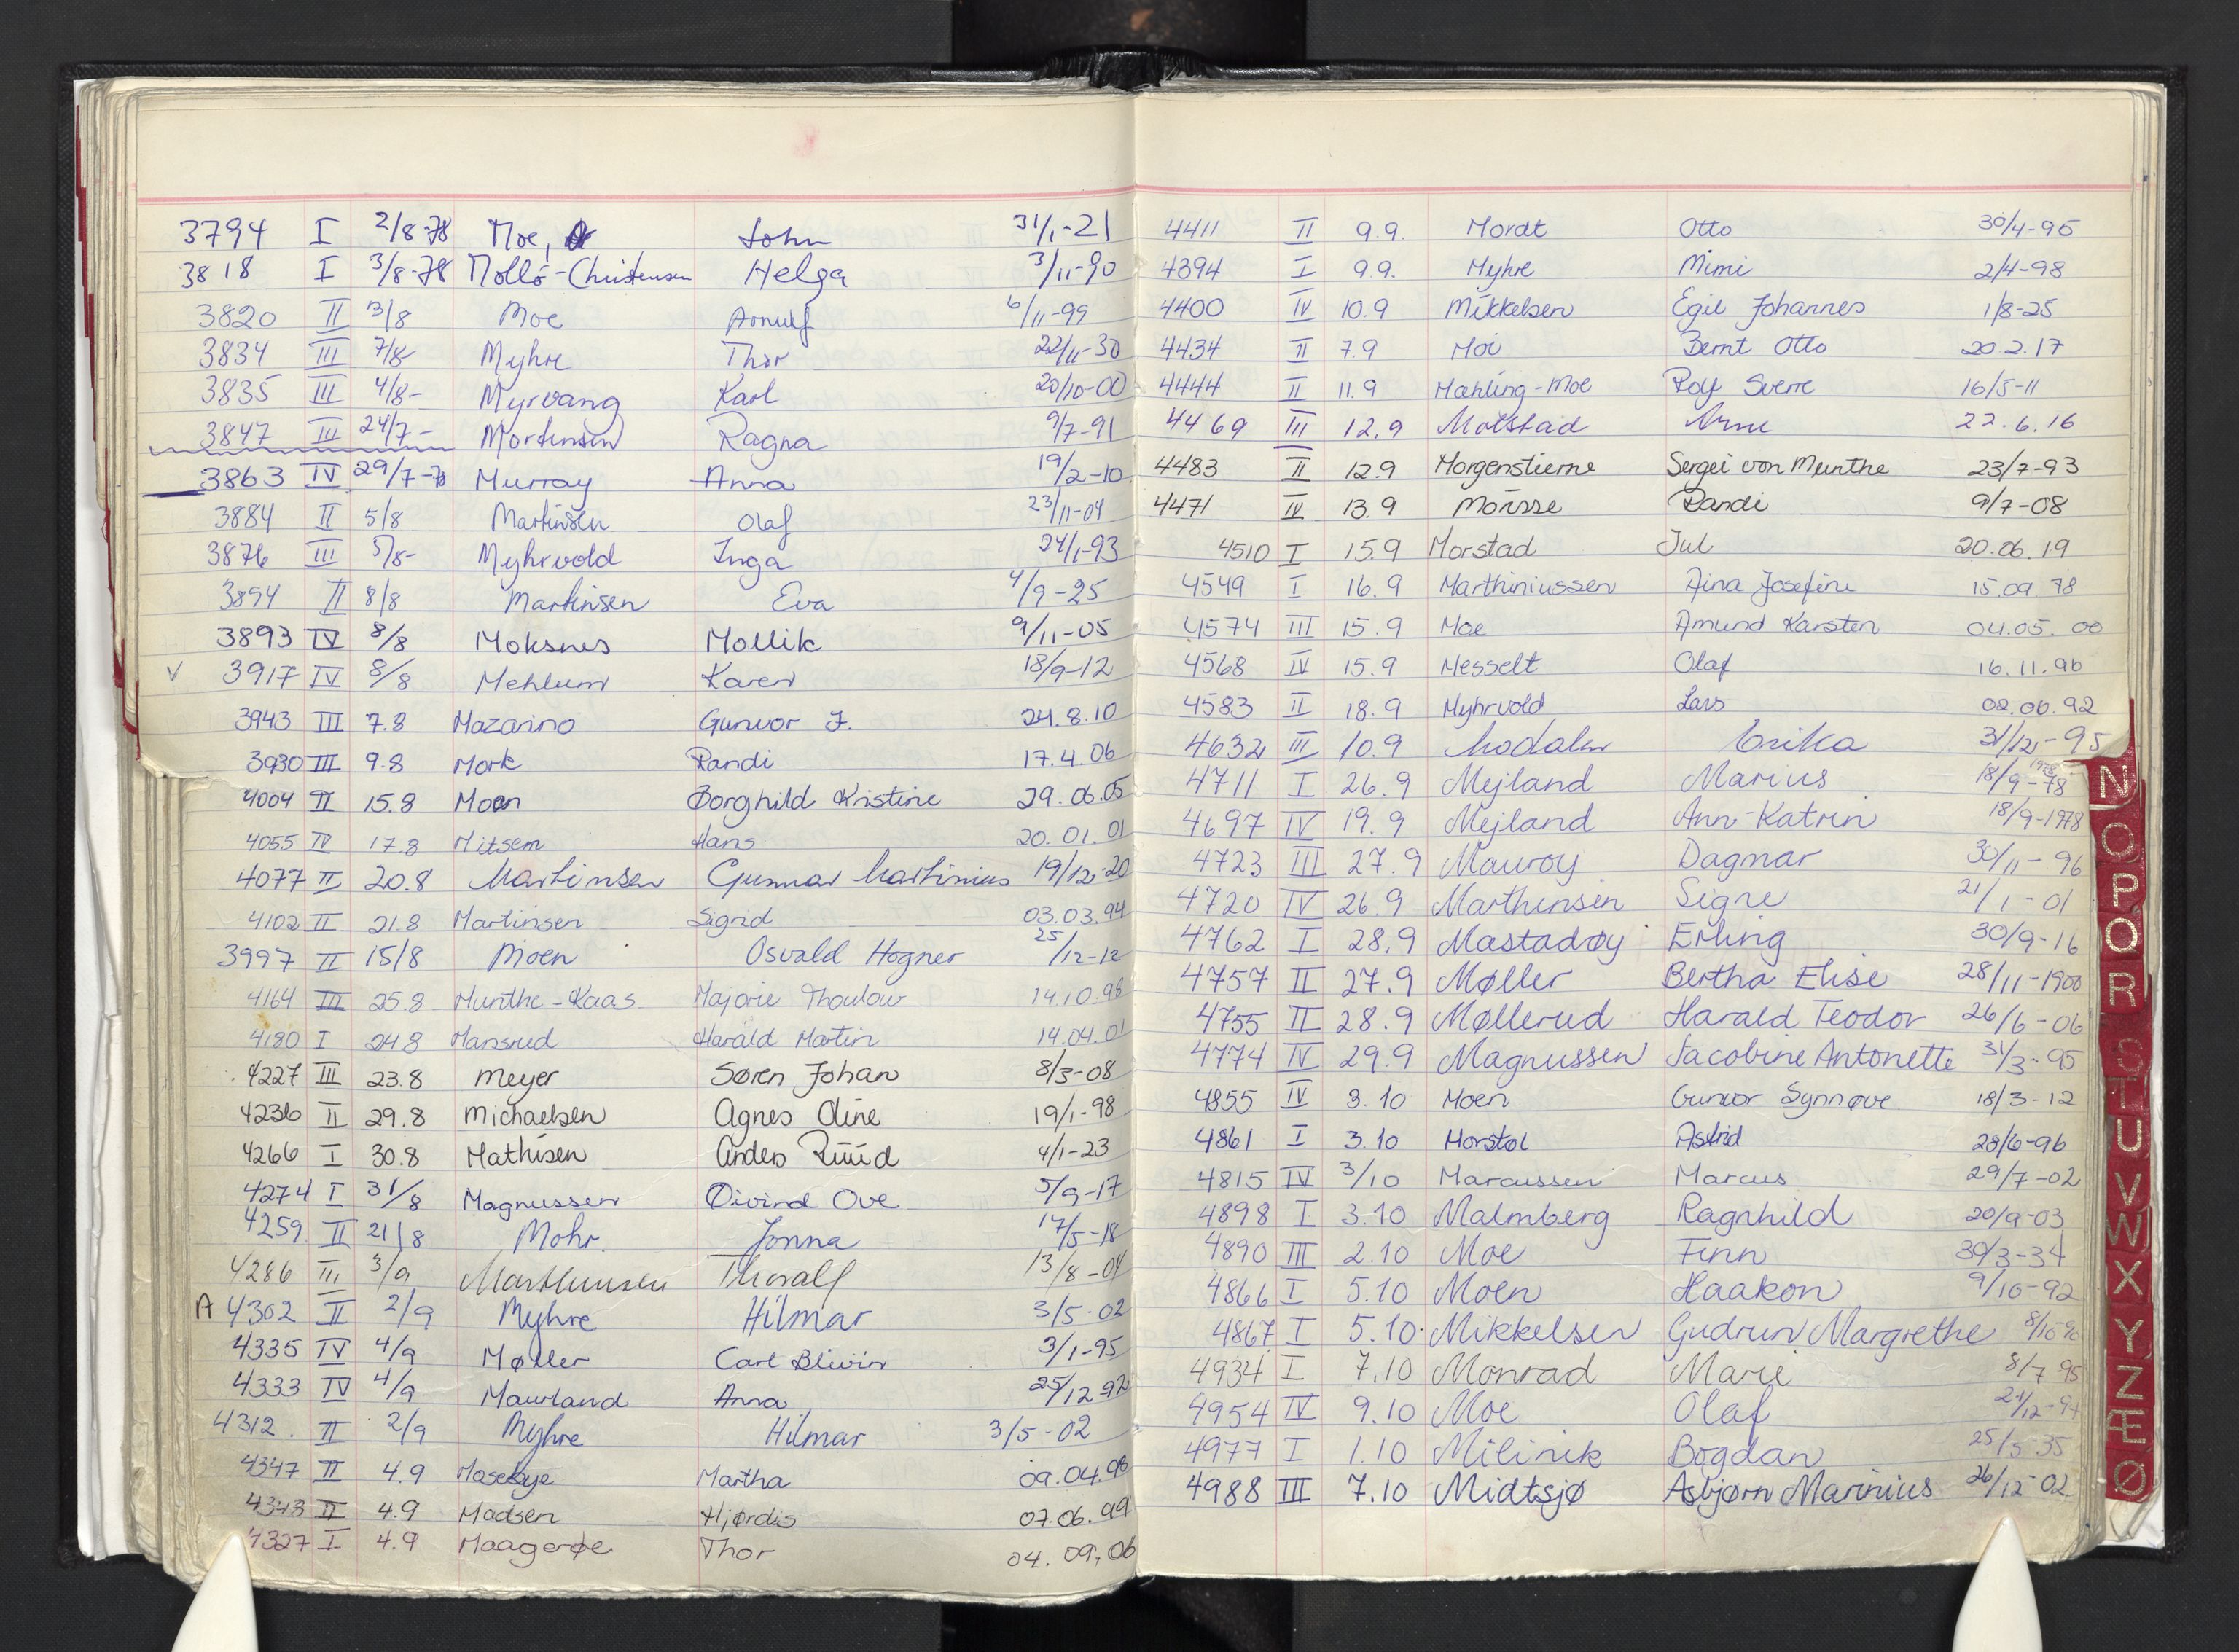 3794 I 2/8-78 Moe, John 31/1-21
3818 I 3/8-78 Mollö-Christensen Helga 3/11-90
3820 II 3/8 Moe Arnulf 6/11-99
3834 III 7/8 Myhre Thor 22/11-30
3835 III 4/8- Myrvang Karl 20/10-00
3847 III 24/7- Mortensen Ragna 9/7-91
3863 IV 29/7-78 Murray Anna 19/2-10
3884 II 5/8 Martinsen Olaf 23/11-04
3876 III 5/8- Myhrvold Inga 24/1-93
3894 II 8/8 Martinsen Eva 4/9-25
3893 IV 8/8 Moksnes Mollik 9/11-05
V 3917 IV 8/8 Mehlum Karen 18/9-12
3943 III 7.8 Mazarino Gunvor J. 24.8.10
3930 III 9.8 Mork Randi 17.4.06
4004 II 15.8 Moan Borghild Kristine 29.06.05
4055 IV 17.8 Mitsem Hans 20.01.01
4077 II 20.8 Martinsen Gunnar Martinius 19/12-20
4102 II 21.8 Martinsen Sigrid 03.03.94
3997 II 15/8 Moen Osvald Hogner 25/12-12
4164 III 25.8 Munthe-Kaas Majorie Thoulow 14.10.98
4180 I 24.8 Mansrud Harald Martin 14.04.01
4227 III 23.8 Meyer Søren Johan 8/3-08
4236 II 29.8 Michaelsen Agnes Oline 19/1-98
4266 I 30.8 Mathisen Anders Ruud 4/1-23
4274 I 31/8 Magnussen Øivind Ove 5/9-17
4259 II 21/8 Mohr Jonna 17/5-18
4286 III 3/9 Marthinsen Thoralf 13/8-04
A 4302 II 2/9 Myhre Hilmar 3/5-02
4335 IV 4/9 Møller Carl Blivin 3/1-95
4333 IV 4/9 Maurland Anna 25/12 92
4312. II 2/9 Myhre Hilmar 3/5-02
4347 II 4.9 Mosebye Martha 09.04.98
4343 II 4.9 Madsen Hjørdis 07.06.99
4327 I 4.9 Maagerøe Thor 04.09.06
4411 II 9.9. Mordt Otto 30/4-95
4394 I 9.9. Myhre Mimi 2/4-98
4400 IV 10.9 Mikkelsen Egil Johannes 1/8-25
4434 II 7.9 Moi Bernt Otto 20.2.17
4444 II 11.9 Mæhling-Moe Roy Sverre 16/5-11
4469 III 12.9 Molstad Arne 22.6.16
4483 II 12.9 Morgenstierne Sergei von Munthe 23/7-93
4471 IV 13.9 Morisse Randi 9/7-08
4510 I 15.9 Morstad Jul 20.06.19
4549 I 16.9 Marthiniussen Aina Josefine 15.09 78
4574 III 15.9 Moe Amund Karsten 04.05.00
4568 IV 15.9 Messelt Olaf 16.11.96
4583 II 18.9 Myhrvold Lars 02.06.92
4632 III 10.9 Modaler Erika 31/12-95
4711 I 26.9 Mejland Marius 18/9-78 1978
4697 IV 19.9 Mejland Ann-Katrin 18/9-1978
4723 III 27.9 Mauroy Dagmar 30/11-96
4720 IV 26.9 Marthinsen Signe 21/1-01
4762 I 28.9 Mastadrøy Erling 30/9-16
4757 II 27.9 Møller Bertha Elise 28/11-1900
4755 II 28.9 Møllerud Harald Teodor 26/6-06
4774 IV 29.9 Magnussen Jacobine Antonette 31/3-95
4855 IV 3.10 Moen Gunvor Synnøve 18/3-12
4861 I 3.10 Morstøl Astrid 28/6-96
4815 IV 3/10 Marcussen Marcus 29/7-02
4898 I 3.10 Malmberg Ragnhild 20/9-03
4890 III 2.10 Moe Finn 30/3-34
4866 I 5.10 Moen Haakon 9/10-92
4867 I 5.10 Mikkelsen Gudrun Margrethe
4934 I 7.10 Monrad Marie 8/7 95
4954 IV 9.10 Moe Olaf
4977 I 1.10 Milinik Bogdan 25/5-35
4988 III 7.10 Midtsjø Asbjørn Marinius 26/12-02
N
O
P
Q
R
S
T
U
V
W
X
Y
Z
Æ
Ø